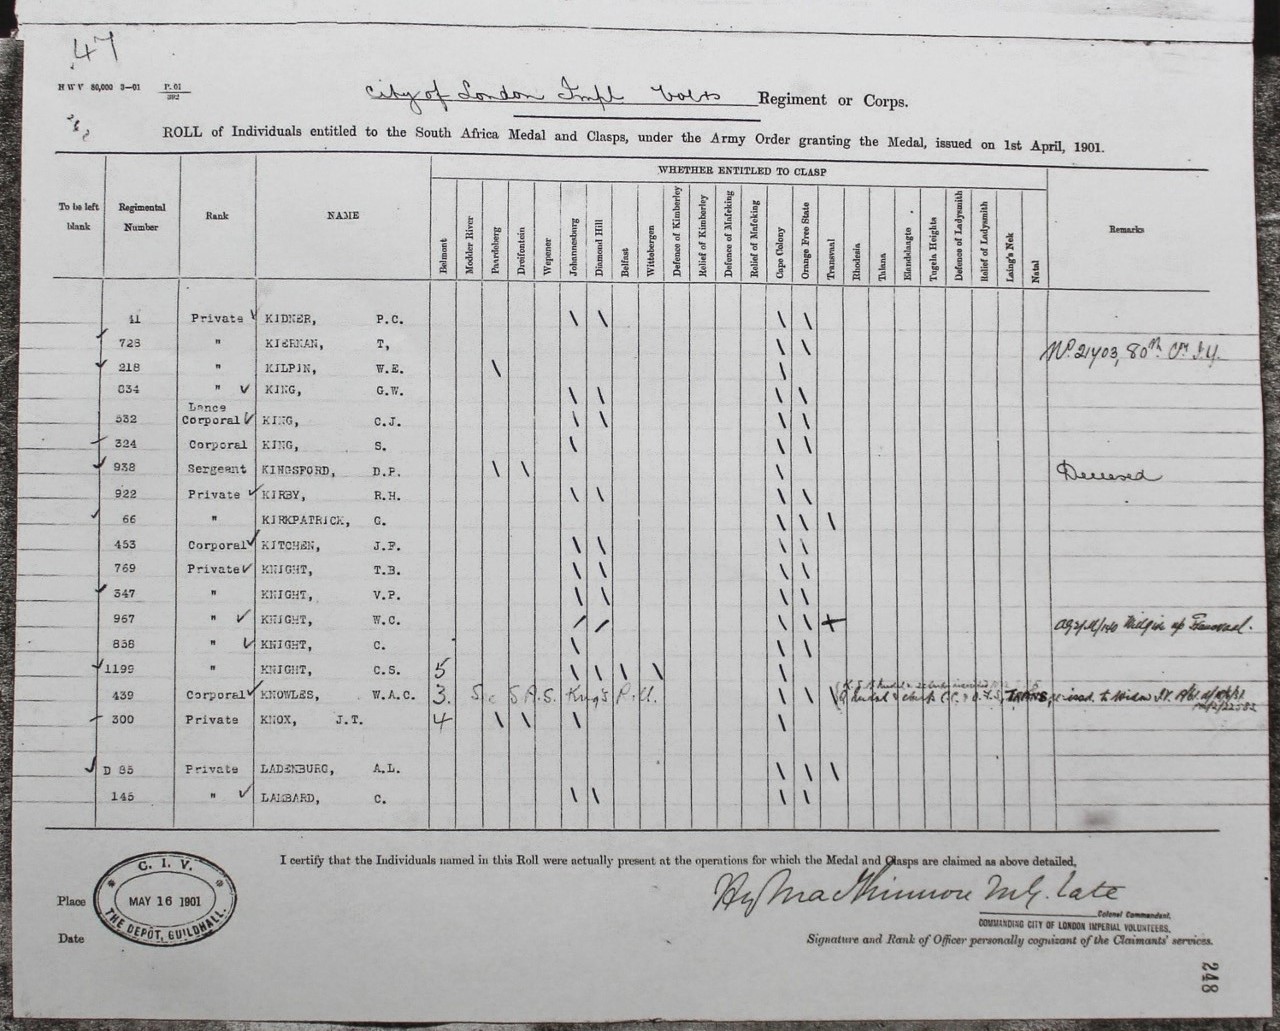 47
H W V 80,000 3—01 P. 01 / 392
City of London Impl Volts Regiment or Corps.
ROLL of Individuals entitled to the South Africa Medal and Clasps, under the Army Order granting the Medal, issued on 1st April, 1901.
WHETHER ENTITLED TO CLASP
To be left blank Regimental Number Rank NAME Belmont Modder River Paardeberg Dreifontein Wepener Johannesburg Diamond Hill Belfast Wittebergen Defence of Kimberley Relief of Kimberley Defence of Mafeking Relief of Mafeking Cape Colony Orange Free State Transvaal Rhodesia Talana Elandslaagte Tugela Heights Defence of Ladysmith Relief of Ladysmith Laing's Nek Natal Remarks
41 Private ✓ KIDNER, P.C. \ \ \ \
✓ 728 " KIERNAN, T, \ \ No 21403, 80th Cy I.Y.
✓ 218 " KILPIN, W.E. \ \
634 " ✓ KING, G.W. \ \ \ \
Lance
532 Corporal ✓ KING, C.J. \ \ \ \
324 Corporal KING, S. \ \ \
✓ 938 Sergeant KINGSFORD, D.P. \ \ \ Deceased
922 Private ✓ KIRBY, R.H. \ \ \ \
✓ 66 " KIRKPATRICK, G. \ \ \
453 Corporal ✓ KITCHEN, J.F. \ \ \ \
769 Private ✓ KNIGHT, T.B. \ \ \ \
✓ 347 " KNIGHT, V.P. \ \ \ \
967 " ✓ KNIGHT, W.C. / / \ \ +
838 " ✓ KNIGHT, C. \ \ \
✓ 1199 " KNIGHT, C.S. 5 \ \ \ \ \
439 Corporal ✓ KNOWLES, W.A.C. 3. See S.A.S. King's Roll. \ \ \ TRANS, to Widow
300 Private KNOX, J.T. 4 \ \ \ \
✓ D 85 Private LADENBURG, A.L. \ \ \
145 " ✓ LAMBARD, C. \ \ \ \
I certify that the Individuals named in this Roll were actually present at the operations for which the Medal and Clasps are claimed as above detailed,
C. I. V.
MAY 16 1901
THE DEPÔT, GUILDHALL.
Place
Date
Hy MacKinnon M.G. late
Colonel Commandant.
COMMANDING CITY OF LONDON IMPERIAL VOLUNTEERS.
Signature and Rank of Officer personally cognizant of the Claimants' services.
248